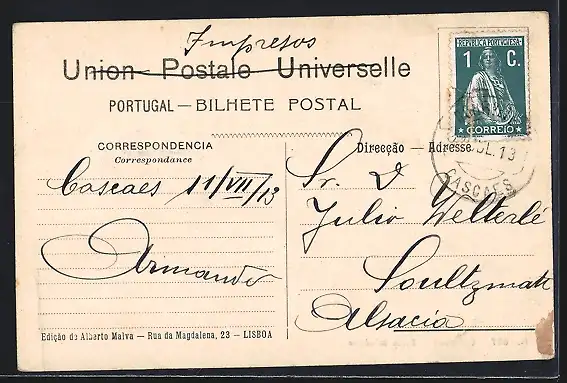 Impresos
Union Postale Universelle
PORTUGAL — BILHETE POSTAL
REPUBLICA PORTUGUESA
1 C.
CORREIO
JUL. 13
CASCAES
CORRESPONDENCIA
Correspondance
Cascaes 11/VII/13
Armando
Direcção — Adresse
Sr. D
Julio Welterlé
Soultzmatt
Alsacia
Edição de Alberto Malva — Rua da Magdalena, 23 — LISBOA